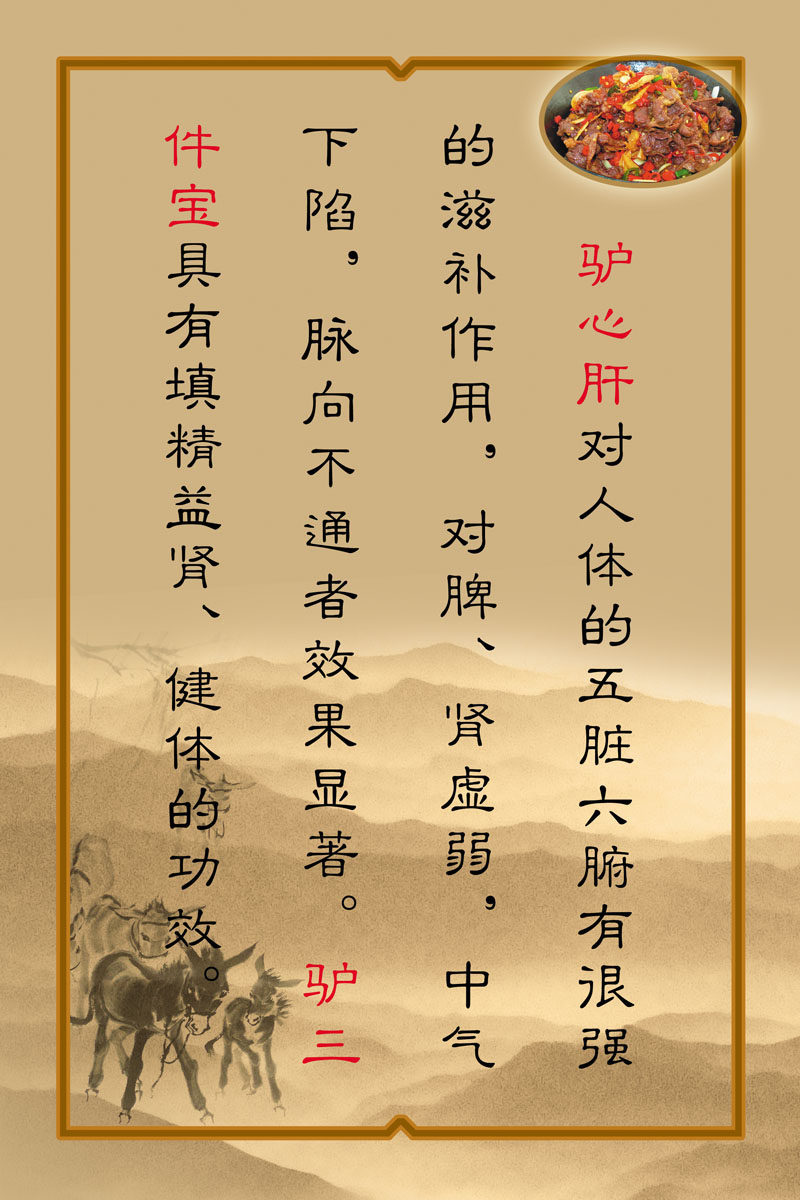 驴心肝对人体的五脏六腑有很强
的滋补作用，对脾、肾虚弱，中气
下陷，脉向不通者效果显著。驴三
件宝具有填精益肾、健体的功效。